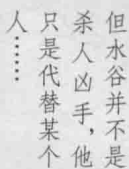 但水谷并不是
杀人凶手，他
只是代替某个
人……